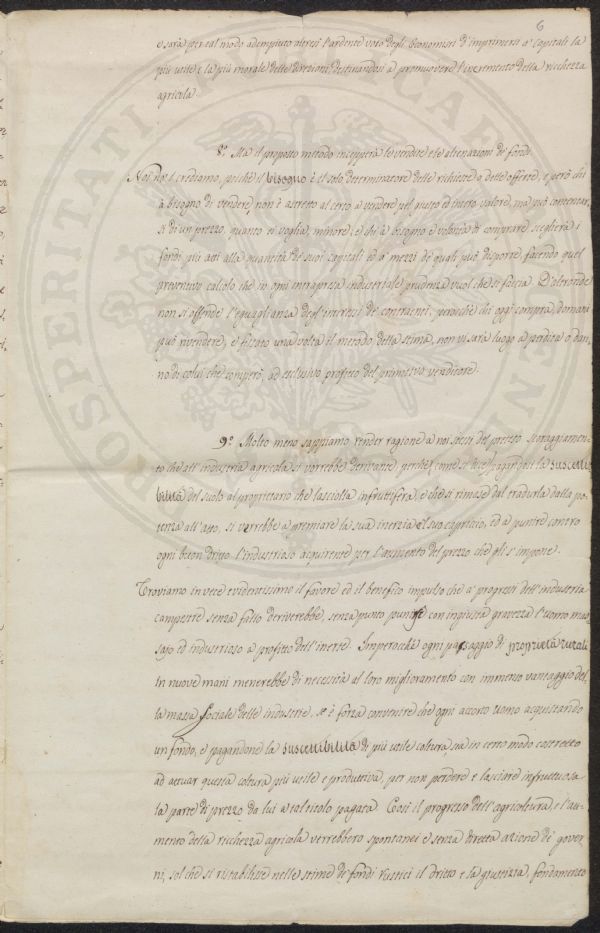 6
e sarà per tal modo adempiuto altresì l'ardente voto degli Economisti d'imprimersi a' Capitali la
più utile, e la più morale delle direzioni, destinandosi a promuovere l'incremento della ricchezza
agricola.
8.° Ma il proposto metodo incepperà le vendite e le alienazioni de' fondi.
Noi nol crediamo, poichè il bisogno è il solo determinatore delle richieste o delle offerte, e però chi
à bisogno di vendere, non è astretto al certo a vendere pel giusto ed intero valore, ma può contentar-
si di un prezzo, quanto ei voglia, minore; e chi à bisogno e volontà di comprare sceglierà i
fondi più atti alla quantità de' suoi capitali ed a' mezzi di quali può disporre, facendo quel
preventivo calcolo che in ogni intrapresa industriale prudenza vuol che si faccia. D'altronde
non si offende l'eguaglianza degl'interessi de' contraenti, perciochè chi oggi compra, domani
può rivendere, e fissato una volta il metodo della stima, non vi sarà luogo a perdita o dan-
no di colui che comperò, ad esclusivo profitto del primitivo venditore.
9.° Molto meno sappiamo render ragione a noi stessi del preteso scoraggiamen-
to che all'industria agricola si vorrebbe derivante, perchè, come si dice, pagandosi la suscetti-
bilità del suolo al proprietario che lasciolla infruttifera, e che si rimase dal tradurla dalla po-
tenza all'atto, si verrebbe a premiare la sua inerzia e 'l suo capriccio, ed a punire contro
ogni buon dritto l'industrioso acquirente per l'aumento del prezzo che gli s'impone.
Troviamo invece evidentissimo il favore ed il benefico impulso che a' progressi dell'industria
campestre senza fallo deriverebbe, senza punto punire con ingiusta gravezza l'uomo mas-
sajo ed industrioso a profitto dell'inerte. Imperocchè ogni passaggio di proprietà rurali
in nuove mani menerebbe di necessità al loro miglioramento con immenso vantaggio del-
la massa sociale delle industrie, è forza convenire che ogni accorto uomo acquistando
un fondo, e pagandone la suscettibilità di più utile coltura sia in certo modo costretto
ad attuar questa coltura più utile e produttiva, per non perdere e lasciare infruttuosa
la parte di prezzo da lui a tal titolo pagata. Così il progresso dell'agricoltura, e l'au-
mento della ricchezza agricola verrebbero spontanei e senza diretta azione de' gover-
ni, sol che si ristabilisse nelle stime de' fondi rustici il dritto e la giustizia, fondamento